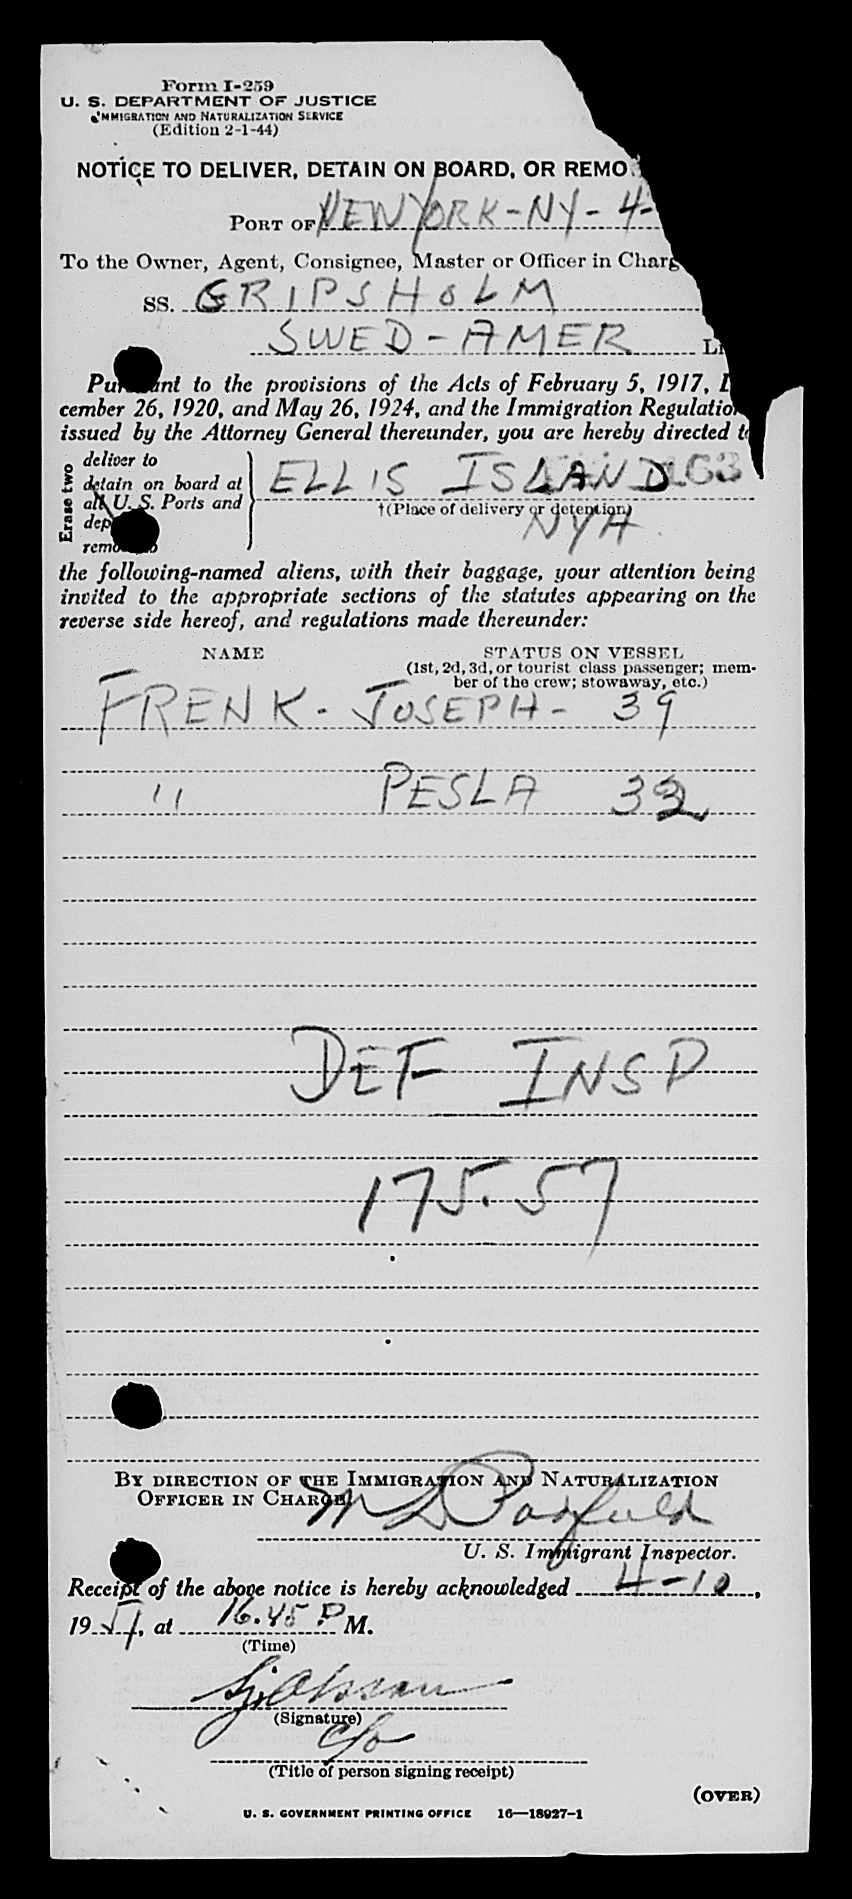 Form I-259
U. S. DEPARTMENT OF JUSTICE
IMMIGRATION AND NATURALIZATION SERVICE
(Edition 2-1-44)
NOTICE TO DELIVER, DETAIN ON BOARD, OR REMO
PORT OF NEW YORK-NY-4-
To the Owner, Agent, Consignee, Master or Officer in Charg
SS. GRIPSHOLM
SWED-AMER LI
Pursuant to the provisions of the Acts of February 5, 1917, D
cember 26, 1920, and May 26, 1924, and the Immigration Regulation
issued by the Attorney General thereunder, you are hereby directed to
Erase two
deliver to
detain on board at
all U. S. Ports and
dep
remo
ELLIS ISLAND 163
†(Place of delivery or detention)
NYH
the following-named aliens, with their baggage, your attention being
invited to the appropriate sections of the statutes appearing on the
reverse side hereof, and regulations made thereunder:
NAME STATUS ON VESSEL
(1st, 2d, 3d, or tourist class passenger; mem-
ber of the crew; stowaway, etc.)
FRENK - JOSEPH - 39
" PESLA 32
DEF INSP
175.57
BY DIRECTION OF THE IMMIGRATION AND NATURALIZATION
OFFICER IN CHARGE
U. S. Immigrant Inspector.
Receipt of the above notice is hereby acknowledged 4-10,
1951, at 16.45 P M.
(Time)
(Signature)
c/o
(Title of person signing receipt)
(OVER)
U. S. GOVERNMENT PRINTING OFFICE 16—18927-1